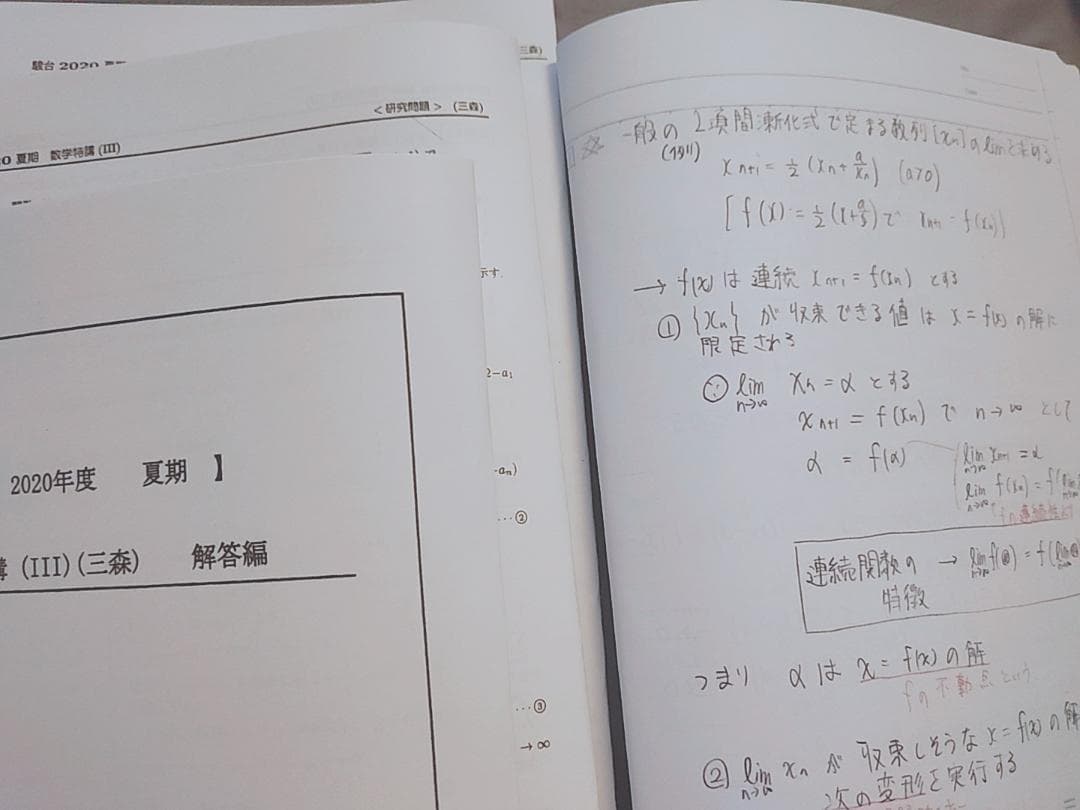 駿台 2020
三森)
<研究問題> (三森)
0 夏期 数学特講 (III)
示す.
2-a₁
-aₙ)
…②
2020年度 夏期 】
講 (III) (三森) 解答編
…③
→ ∞
☆ 一般の2項間漸化式で定まる数列{xn}のlimを求める
(イタリ)
x n+1 = 1/2 (xn + a/xn) (a>0)
[f(x) = 1/2 (x + a/x) で xn+1 = f(xn)]
→ f(x) は 連続 xn+1 = f(xn) とする
① {xn} が 収束できる値は x = f(x) の解に
限定される
∵ lim n→∞ xn = α とする
xn+1 = f(xn) で n→∞ として
α = f(α)
lim n→∞ xn+1 = α
lim n→∞ f(xn) = f(lim n→∞
fの連続性より
連続関数の → lim n→∞ f(@) = f(lim n→∞ @
特徴
つまり αは x = f(x) の解
fの不動点という
② lim n→∞ xn が 収束しそうな x = f(x) の解
次の変形を実行する